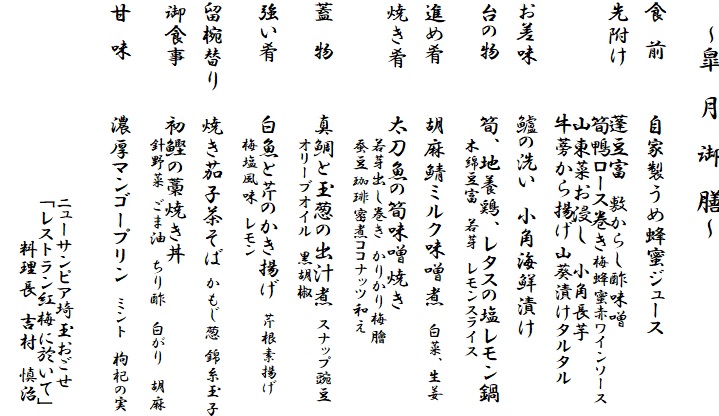 ～皐月御膳～
食前 自家製うめ蜂蜜ジュース
先附け 蓬豆富 敷からし酢味噌
筍鴨ロース巻き 梅蜂蜜赤ワインソース
山東菜お浸し 小角長芋
牛蒡から揚げ 山葵漬けタルタル
お差味 鱸の洗い 小角海鮮漬け
台の物 筍、地養鶏、レタスの塩レモン鍋
木綿豆富 若芽 レモンスライス
進め肴 胡麻鯖ミルク味噌煮 白菜、生姜
焼き肴 太刀魚の筍味噌焼き
若芽出し巻き かりかり梅膾
蚕豆珈琲蜜煮ココナッツ和え
蓋物 真鯛と玉葱の出汁煮 スナップ豌豆
オリーブオイル 黒胡椒
強い肴 白魚と芹のかき揚げ 芹根素揚げ
梅塩風味 レモン
留椀替り 焼き茄子茶そば かもじ葱 錦糸玉子
御食事 初鰹の藁焼き丼
針野菜 ごま油 ちり酢 白がり 胡麻
甘味 濃厚マンゴープリン ミント 枸杞の実
ニューサンピア埼玉おごせ
「レストラン紅梅に於いて」
料理長 吉村 慎治